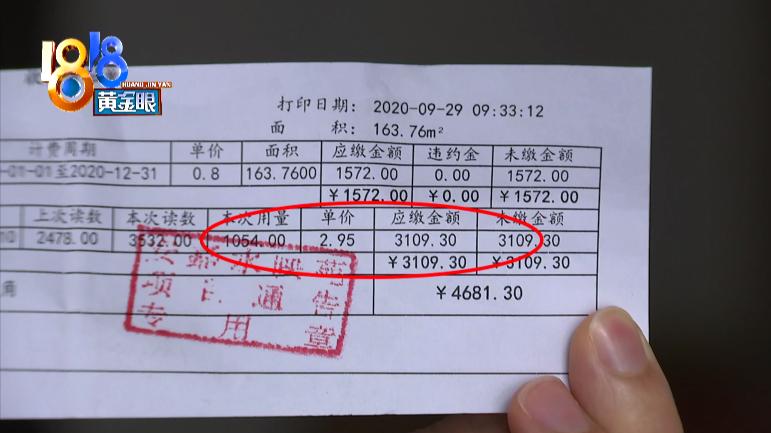 1818
HUANG JIN YAN
黄金眼
打印日期: 2020-09-29 09:33:12
面 积: 163.76m²
计费周期 单价 面积 应缴金额 违约金 未缴金额
-01-01至2020-12-31 0.8 163.7600 1572.00 0.00 1572.00
¥1572.00 ¥0.00 ¥1572.00
上次读数 本次读数 本次用量 单价 应缴金额 未缴金额
2478.00 3532.00 1054.00 2.95 3109.30 3109.30
¥3109.30 ¥3109.30
角 ¥4681.30
项 通告
专用章